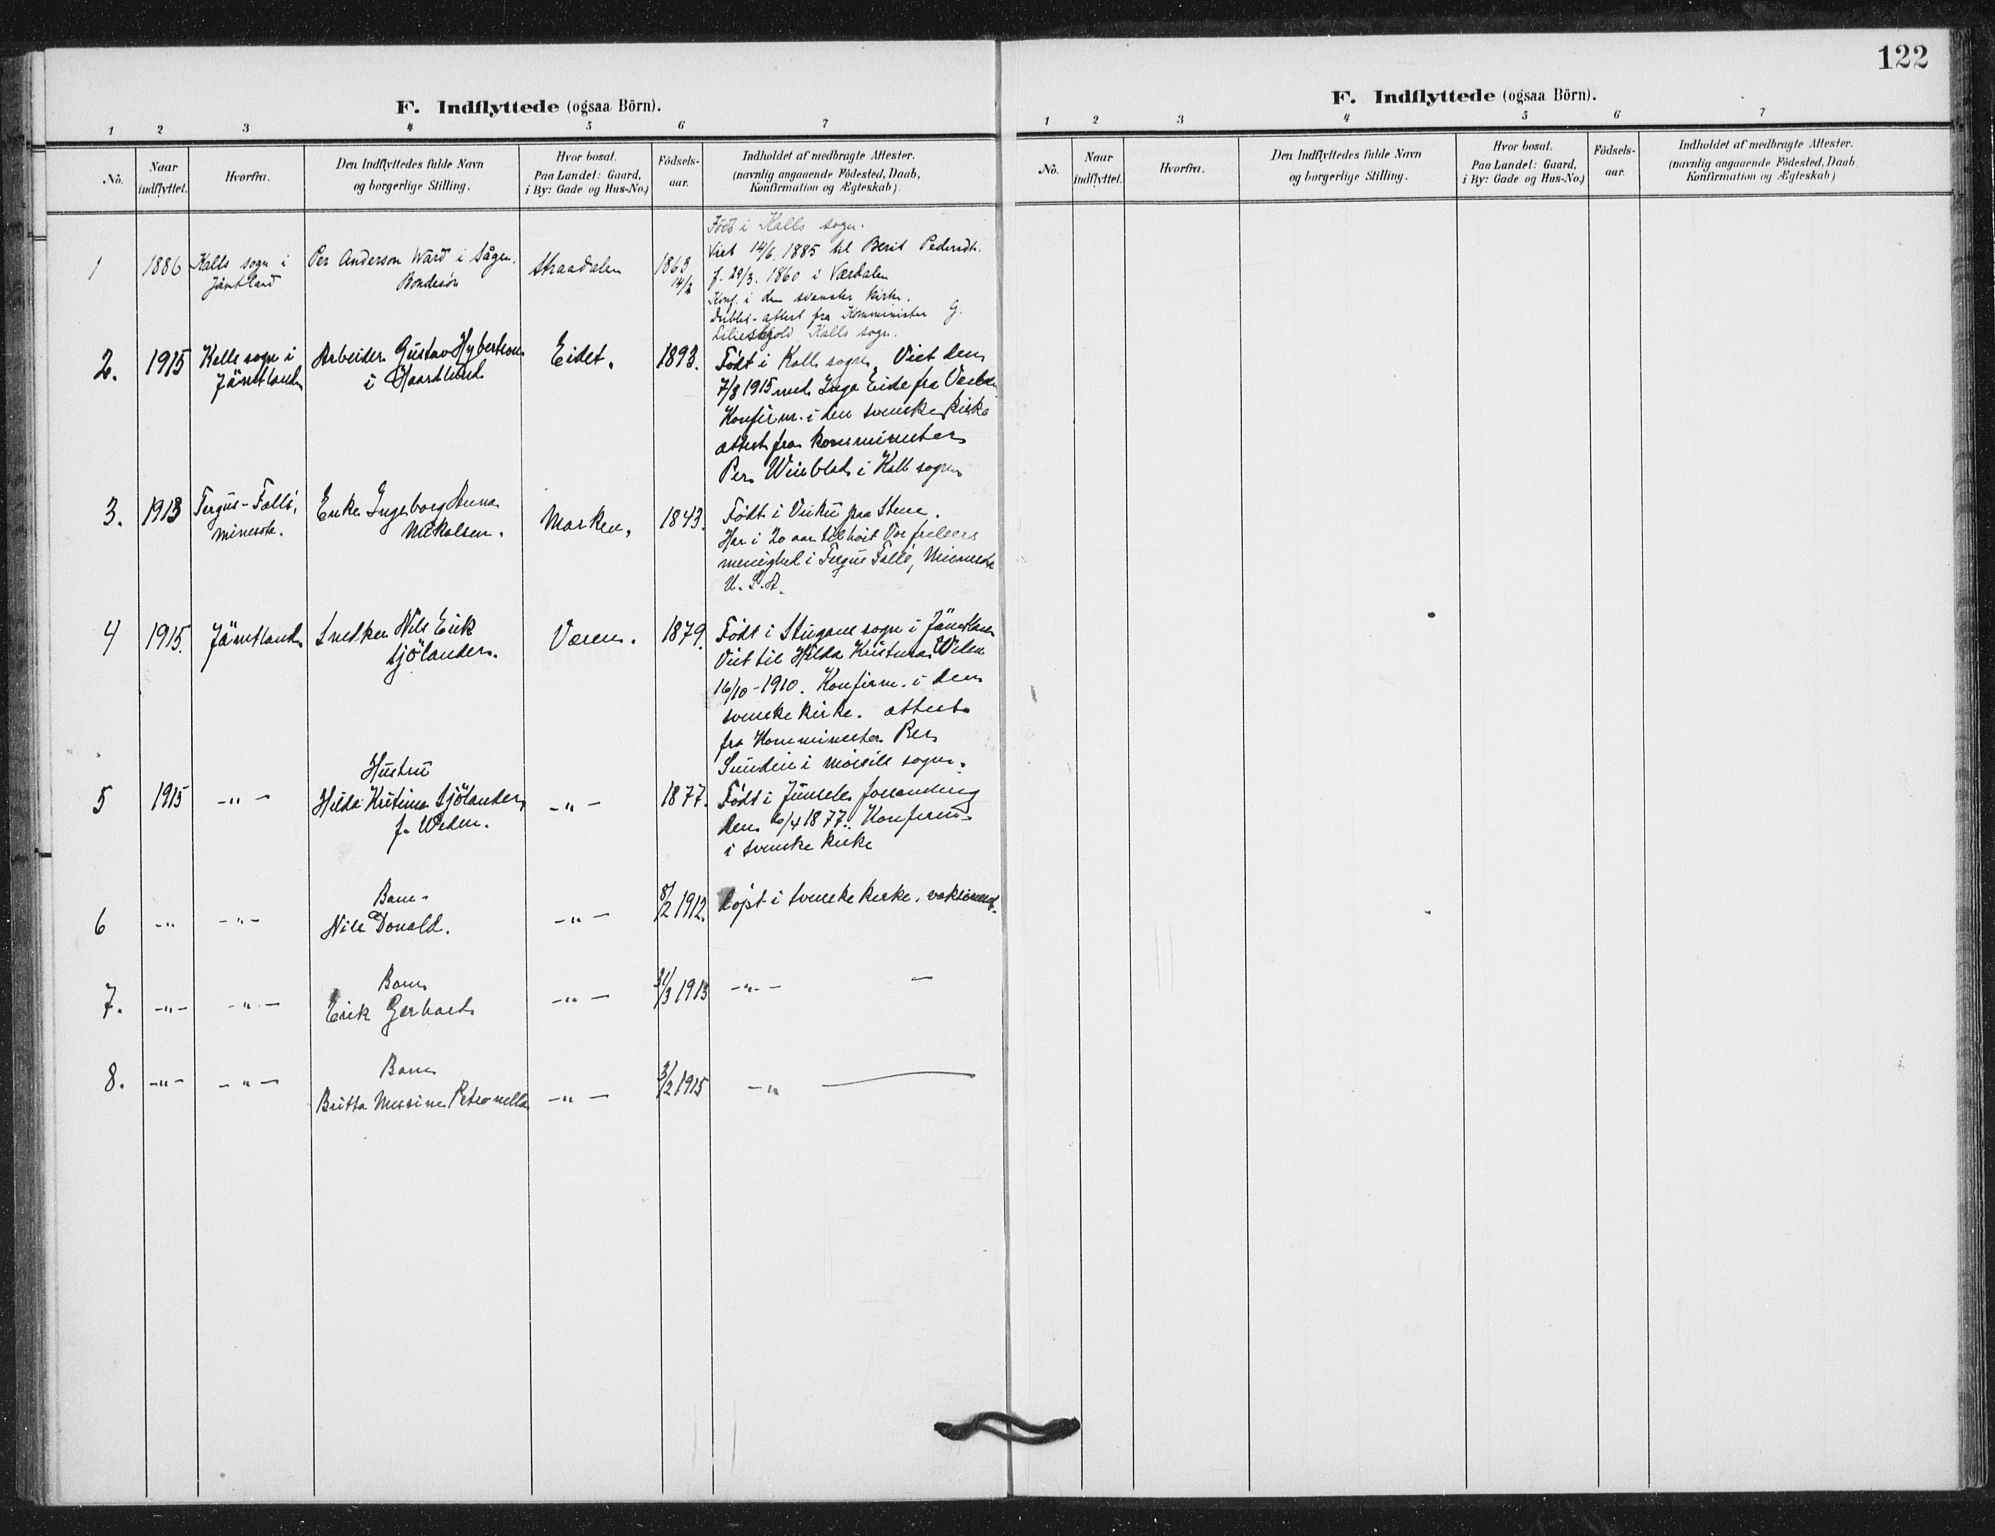 122
F. Indflyttede (ogsaa Börn).
1 2 3 4 5 6 7
No.
Naar indflyttet.
Hvorfra.
Den Indflyttedes fulde Navn og borgerlige Stilling.
Hvor bosat. Paa Landet: Gaard, i By: Gade og Hus-No.)
Födsels-aar.
Indholdet af medbragte Attester.
(navnlig angaaende Födested, Daab,
Konfirmation og Ægteskab).
1 1886 Kalls sogn i Jämtland
Per Anderson Wärd i Sågen.
Bondesön
Straadalen
1863 14/2
Föd i Kalls sogn.
Viet 14/6 1885 til Berit Pedersdt.
f. 29/3. 1860 i Værdalen
Konf. i den svenske kirke.
Dublet-attest fra Komminister G.
Liliesköld, Kalls sogn.
2. 1915 Kalls sogn i Jämtland
Arbeider Gustav
i
Eidet. 1893.
Født i Kalls sogn. Viet den
7/8 1915 med Inga Eide fra
Konfirm. i den svenske kirke
attest fra komminister
Per i Kall sogn
3. 1913 Fergus-Falls, minesota.
Enke Ingeborg Anna
Nikolsen.
Marken, 1843.
Født i Vuku paa Stene.
Har i 20 aar tilhört Vor frelsers
menighed i Fergus Falls, Minnesota
U.S.A.
4 1915. Jämtland
Snedker Nils Erik
Sjölander.
Væren. 1879.
Født i Stuguns sogn i Jämtland
Viet til Hilda Kristina Widen
16/10-1910. Konfirm. i den
svenske kirke. attest
fra Komminister Per
Sundin i sogn.
5 1915 -"-
Hustru
Hilda Kristina Sjölander,
f. Widen.
-"- 1877.
Født i Junsele forsamling
den 6/4 1877. Konfirm.
i svenske kirke
6 -"- -"-
Barn
Nils Donald.
-"- 8/2 1912.
Døpt i svenske kirke. vaksineret.
7. -"- -"-
Barn
Erik Gerhard
-"- 31/3 1913 -"- —
8. -"- -"-
Barn
Britta Petronella
-"- 3/2 1915 -"- —
F. Indflyttede (ogsaa Börn).
1 2 3 4 5 6 7
No.
Naar indflyttet.
Hvorfra.
Den Indflyttedes fulde Navn og borgerlige Stilling.
Hvor bosat. Paa Landet: Gaard, i By: Gade og Hus-No.)
Födsels-aar.
Indholdet af medbragte Attester.
(navnlig angaaende Födested, Daab,
Konfirmation og Ægteskab)